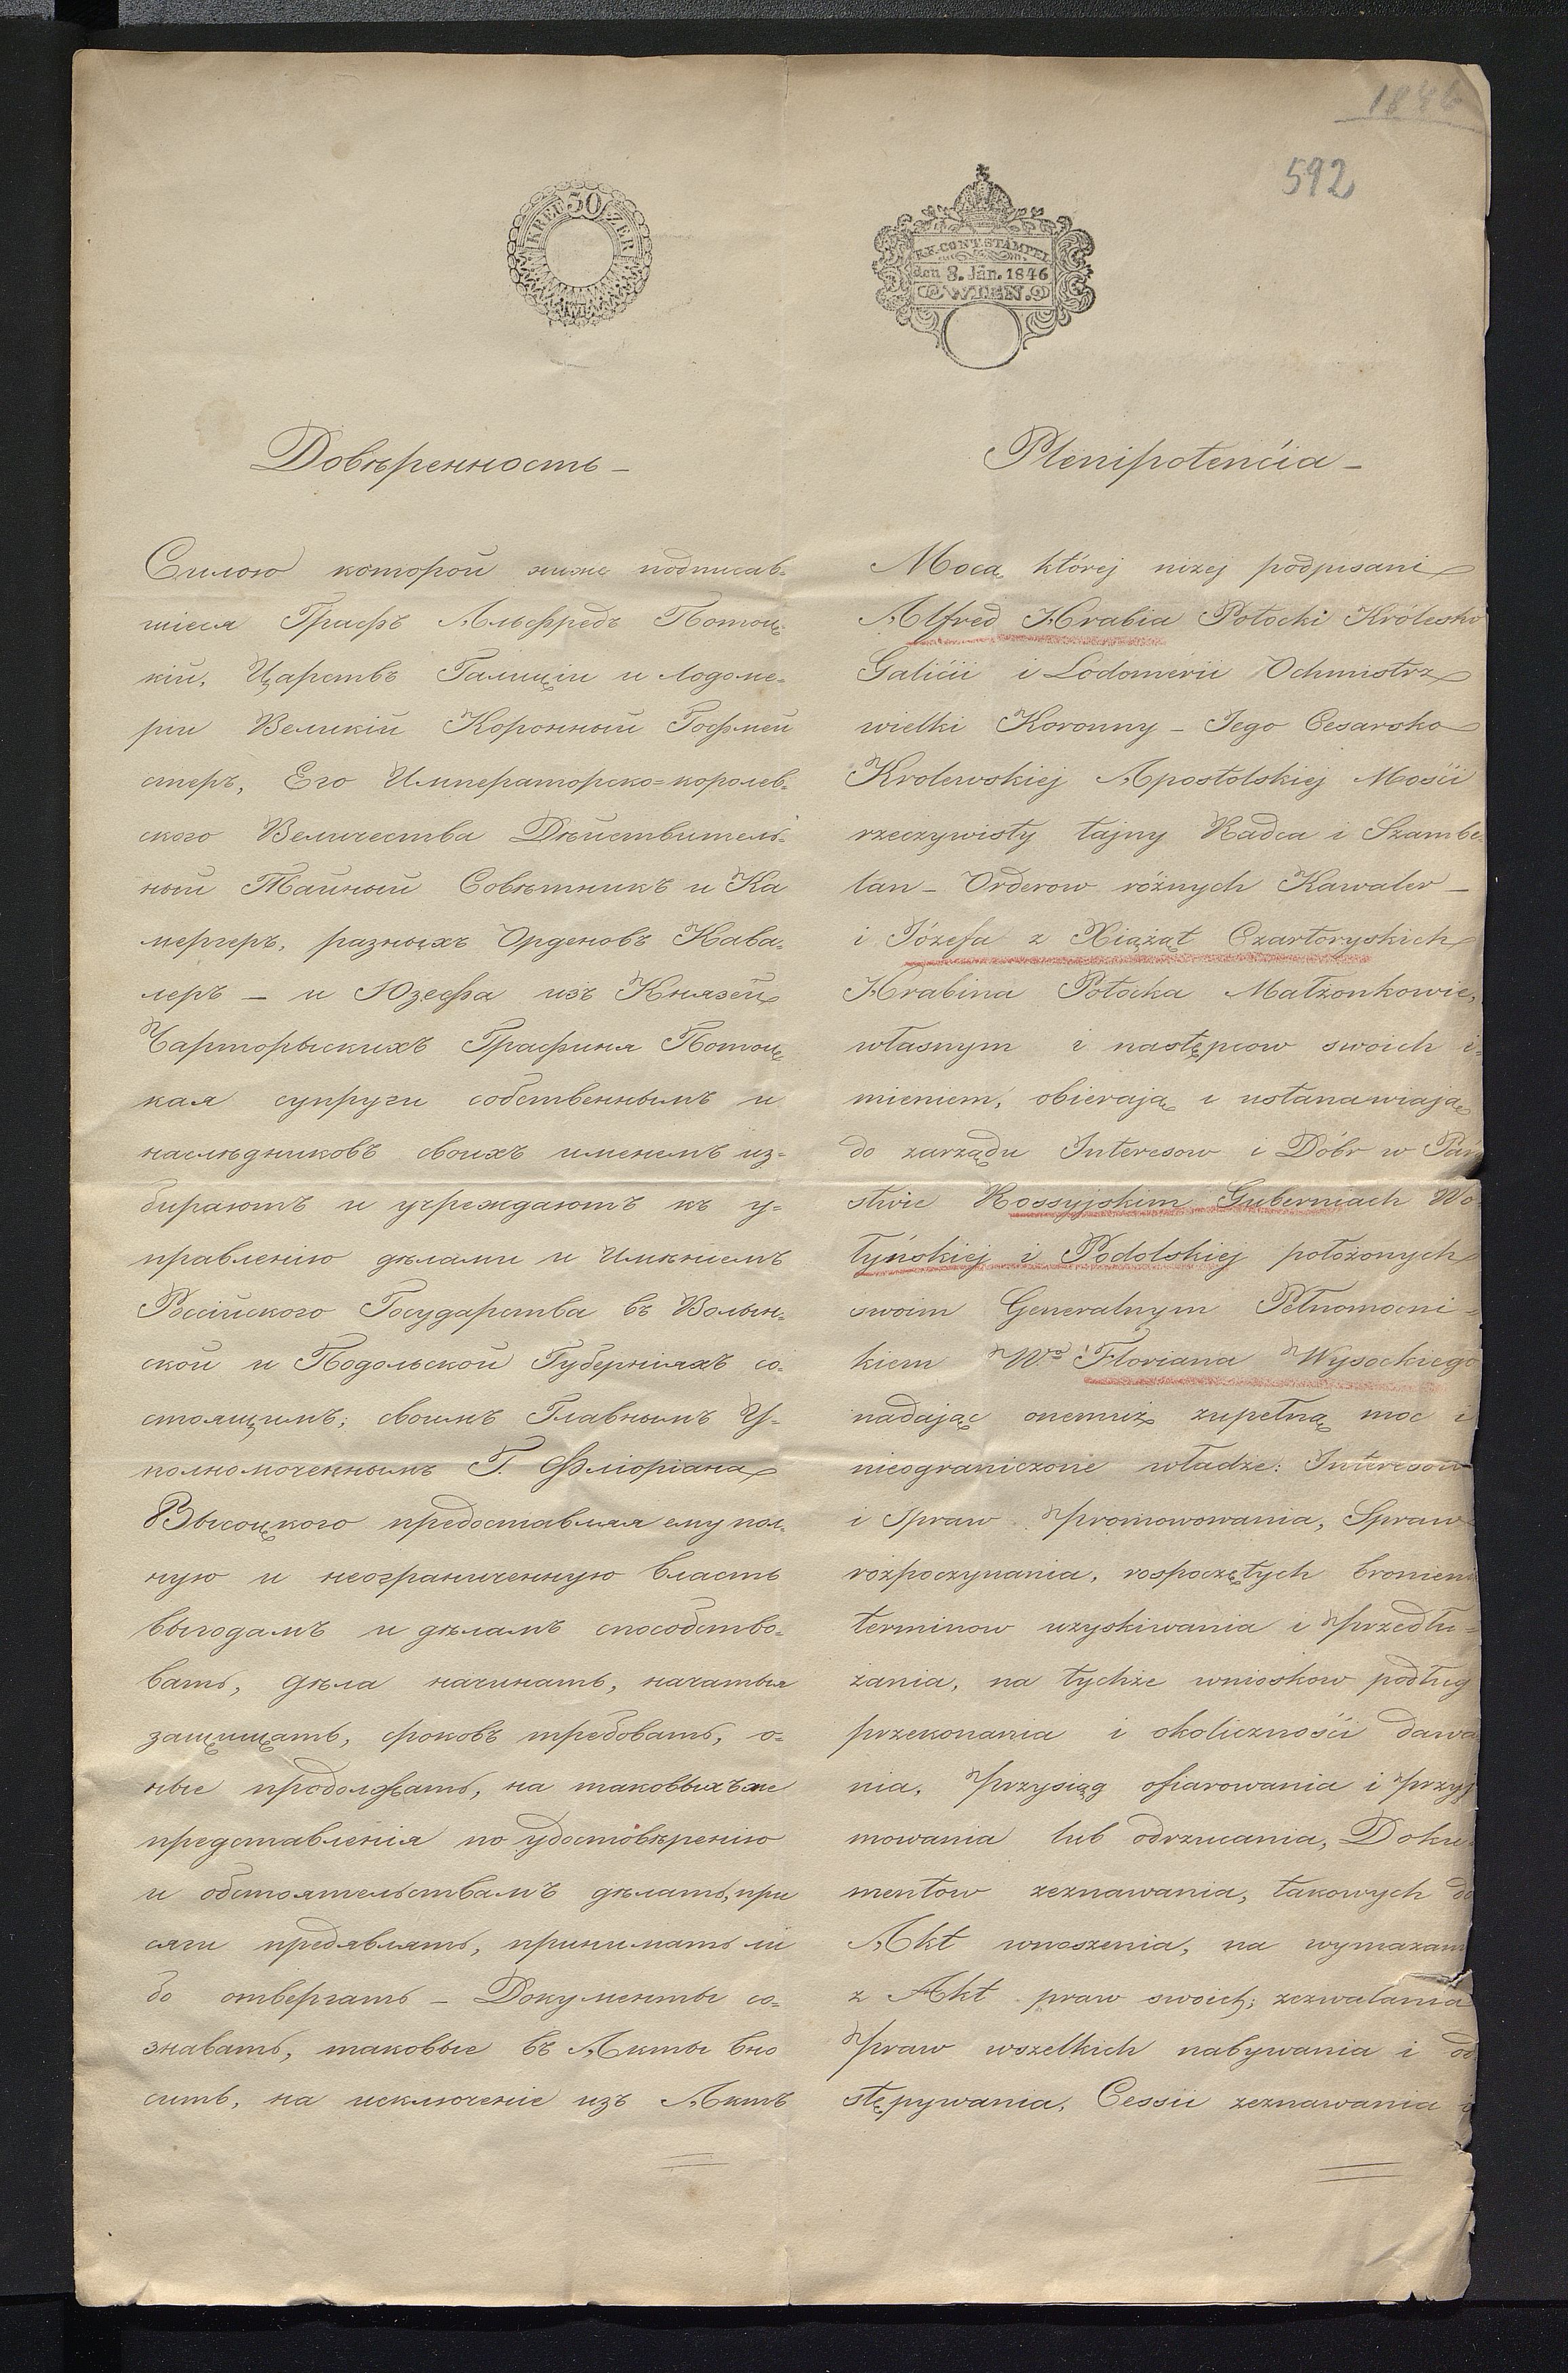 1846
592
30
KREUZER
K.K. CONT. STÄMPEL
den 8. Jän. 1846
WIEN.
Довѣренность –
Силою которой ниже подписав-
шіеся Графъ Альфредъ Потоц-
кій, Царствъ Галиціи и Лодоме-
ріи Великій Коронный Гофмей
стеръ, Его Императорско=королев-
ского Величества Дѣйствитель-
ный Тайный Совѣтникъ и Ка
мергеръ, разныхъ Орденовъ Кава-
леръ – и Юзефа изъ Князей
Чарторыскихъ Графиня Потоц
кая супруги собственнымъ и
наслѣдниковъ своихъ именемъ из-
бираютъ и учреждаютъ къ у-
правленію дѣлами и Имѣніемъ
Россійского Государства въ Волын-
ской и Подольской Губерніяхъ со-
стоящимъ; своимъ Главнымъ У-
полномоченнымъ Г. Фліоріана
Высоцкого предоставляя ему пол-
ную и неограниченную власть
выгодамъ и дѣламъ способство-
вать, дѣла начинать, начатыя
защищать, сроковъ требовать, о-
ные продолжать, на таковыхъже
представленія по удостовѣренію
и обстоятельствамъ дѣлать, при
сяги предявлять, принимать ли
бо отвергать – Документы со-
знавать, таковые въ Акты вно
сить, на исключеніе изъ Актъ
Plenipotencia –
Mocą której niżej podpisani
Alfred Hrabia Potocki Królestw
Galicii i Lodomerii Ochmistrz
wielki Koronny – Jego Cesarsko
Krolewskiej Apostolskiej Mości
rzeczywisty tajny Radca i Szambe-
lan – Orderow różnych Kawaler –
i Józefa z Xiążąt Czartoryskich
Hrabina Potocka Małżonkowie,
własnym i następcow swoich i-
mieniem, obierają i ustanawiają
do zarządu Interesow i Dóbr w Pań
stwie Rossyjskim Guberniach Wo
łyńskiej i Podolskiej położonych
swoim Generalnym Pełnomocni-
kiem Wo Floriana Wysockiego
nadając onemuż zupełną moc i
nieograniczone władze: Interesow
i Spraw promowowania, Spraw
rozpoczynania, rospoczętych bronieni
terminow uzyskiwania i przedłu-
żania, na tychże wnioskow podług
przekonania i okoliczności dawa
nia, przysiąg ofiarowania i przyj
mowania lub odrzucania, Doku-
mentow zeznawania, takowych do
Akt wnoszenia, na wymazani
z Akt praw swoich; zezwalania
praw wszelkich nabywania i od
stępywania, Cessii zeznawania i